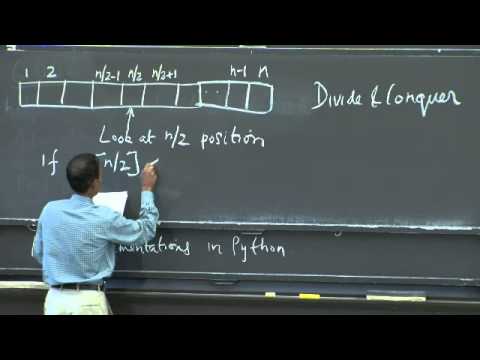 1 2 n/2-1 n/2 n/2+1 n-1 n
Divide & Conquer
Look at n/2 position
If [n/2] <
mentations in Python